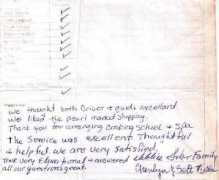 We thought both Driver & guide excellent
We liked the pearl market shopping.
Thank you for arranging Cooking School & Spa
The Service was excellent Thoughtful
& helpful. We are very satisfied.
that very educational & answered
all our questions great.
Family